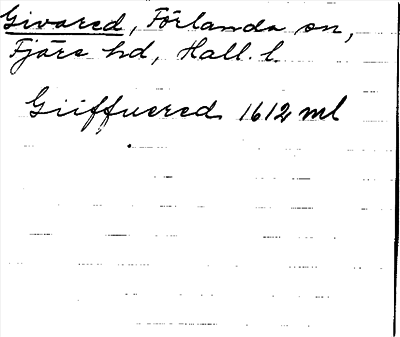 Givared, Förlanda sn,
Fjäre hd, Hall. l.
Giiffuered 1612 ml